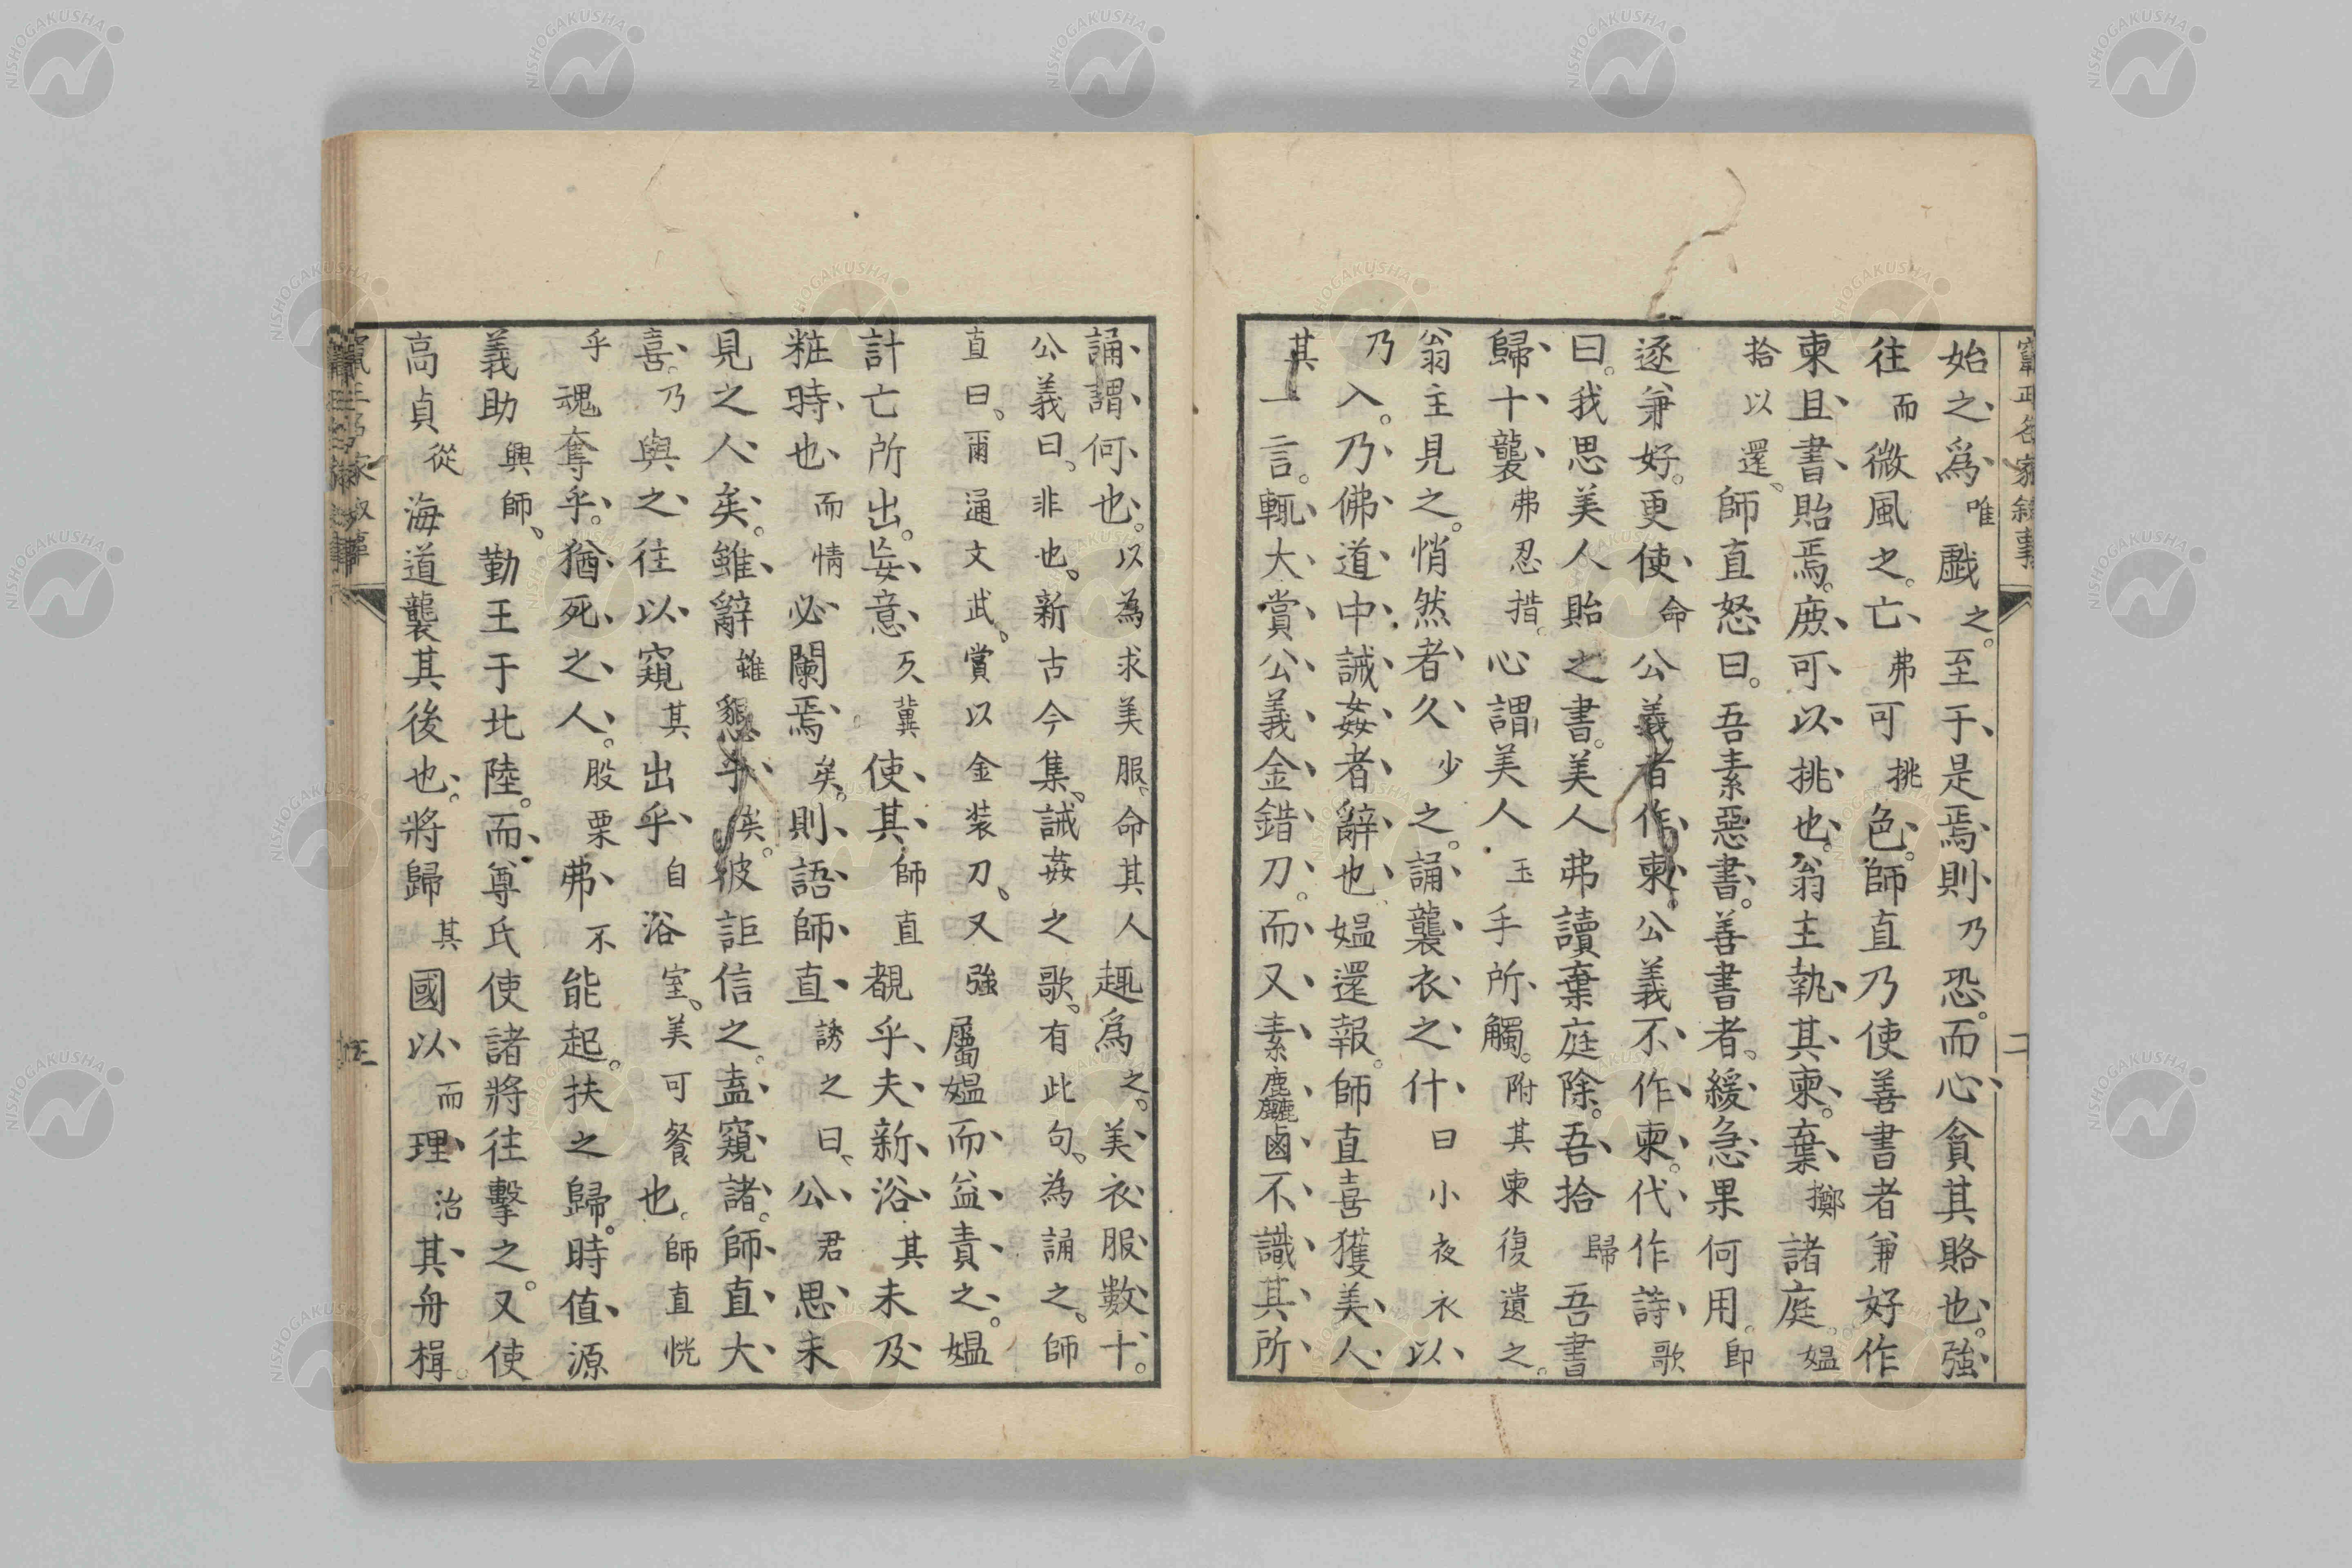 始之爲唯戲之。至于是焉則乃恐。而心貪其賂也。強
往而微風之。亡弗可挑色。師直乃使善書者兼好作
柬且書貽焉。庶可以挑也。翁主執其柬。棄擲諸庭。媼
拾以還、師直怒曰。吾素惡書。善書者。緩急果何用。即
逐兼好。更使命公義者作柬。公義不作柬。代作詩歌
曰。我思美人貽之書。美人弗讀棄庭除。吾拾歸吾書
歸十襲弗忍措。心謂美人玉手所觸。附其柬復遺之。
翁主見之。悄然者久少之。誦襲衣之什曰小夜衣以
乃入。乃佛道中誡姦者辭也媼還報。師直喜獲美人
其一言。輒大賞公義金錯刀。而又素麤鹵不識其所
誦謂何也。以為求美服、命其人趣爲之。美衣服數十。
公義曰、非也。新古今集、誡姦之歌。有此句、為誦之。師
直曰、爾通文武、賞以金装刀、又強屬媼而益責之。媼
計亡所出。妄意冀使其師直覩乎夫新浴其未及
粧時也而情必闌焉矣。則語師直誘之曰、公君思未
見之人矣。雖辭雖懇乎矣。彼詎信之。盍窺諸。師直大
喜。乃與之往以窺其出乎自浴室、美可餐也。師直恍
乎魂奪乎。猶死之人。股栗弗不能起。扶之歸。時值源
義助興師、勤王于北陸。而尊氏使諸將往擊之。又使
高貞從海道襲其後也。將歸其國以而理治其舟楫。
二